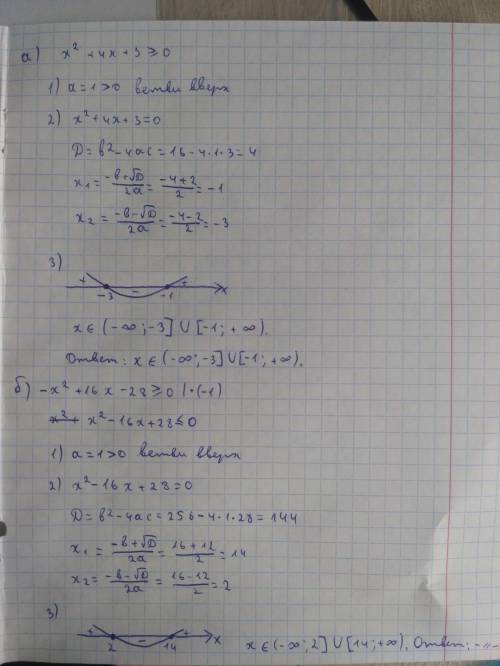 а) x² + 4x + 3 ≥ 0
1) a = 1 > 0 ветви вверх
2) x² + 4x + 3 = 0
D = b² - 4ac = 16 - 4·1·3 = 4
x₁ = (-b+√D)/2a = (-4+2)/2 = -1
x₂ = (-b-√D)/2a = (-4-2)/2 = -3
3)
+ - +
-3 -1 x
x ∈ (-∞; -3] ∪ [-1; +∞).
Ответ: x ∈ (-∞; -3] ∪ [-1; +∞).
б) -x² + 16x - 28 ≥ 0 | ·(-1)
x² - 16x + 28 ≤ 0
1) a = 1 > 0 ветви вверх
2) x² - 16x + 28 = 0
D = b² - 4ac = 256 - 4·1·28 = 144
x₁ = (-b+√D)/2a = (16+12)/2 = 14
x₂ = (-b-√D)/2a = (16-12)/2 = 2
3)
+ - +
2 14 x
x ∈ (-∞; 2] ∪ [14; +∞). Ответ: -"-